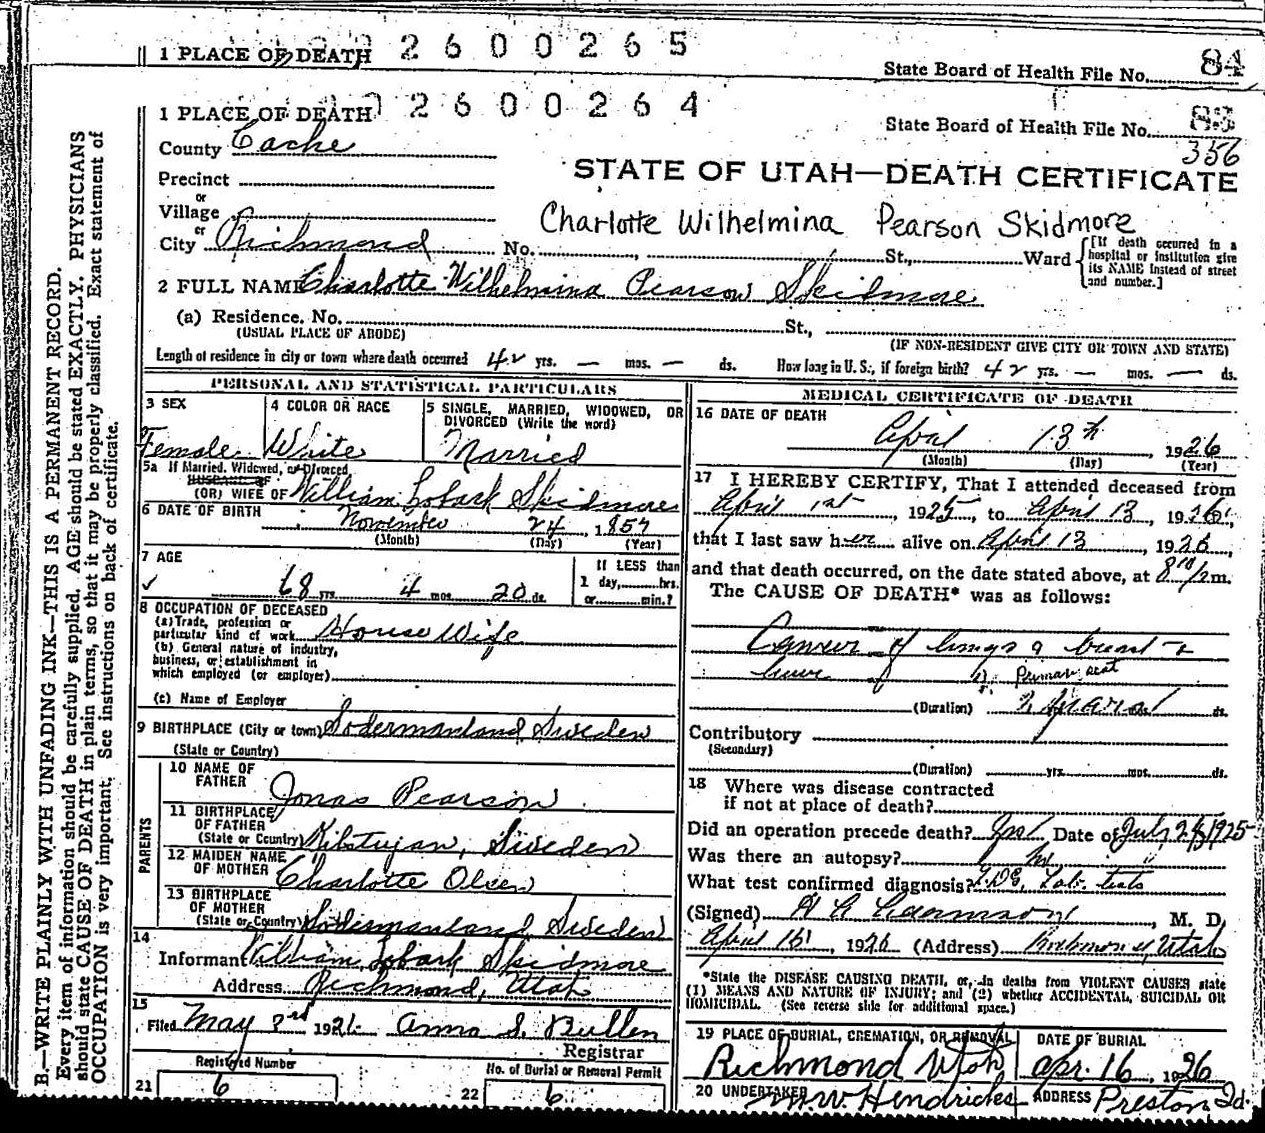 1 PLACE OF DEATH 2600265
State Board of Health File No. 84
1 PLACE OF DEATH 2600264
State Board of Health File No. 83
356
County Cache
STATE OF UTAH—DEATH CERTIFICATE
Precinct
or
Village
Charlotte Wilhelmina Pearson Skidmore
or
City Richmond No. , St., Ward [If death occurred in a hospital or institution give its NAME instead of street and number.]
2 FULL NAME Charlotte Wilhelmina Pearson Skidmore
(a) Residence. No. St.,
(USUAL PLACE OF ABODE) (IF NON-RESIDENT GIVE CITY OR TOWN AND STATE)
Length of residence in city or town where death occurred 42 yrs. — mos. — ds. How long in U. S., if foreign birth? 42 yrs. — mos. — ds.
PERSONAL AND STATISTICAL PARTICULARS
3 SEX
Female
4 COLOR OR RACE
White
5 SINGLE, MARRIED, WIDOWED, OR DIVORCED (Write the word)
Married
5a If Married, Widowed, or Divorced
HUSBAND OF
(OR) WIFE OF William Lobark Skidmore
6 DATE OF BIRTH November 24 1857
(Month) (Day) (Year)
7 AGE
68 yrs. 4 mos. 20 ds.
If LESS than
1 day, hrs.
or min.?
8 OCCUPATION OF DECEASED
(a) Trade, profession or
particular kind of work House Wife
(b) General nature of industry,
business, or establishment in
which employed (or employer)
(c) Name of Employer
9 BIRTHPLACE (City or town) Sodermanland Sweden
(State or Country)
PARENTS
10 NAME OF
FATHER Jonas Pearson
11 BIRTHPLACE
OF FATHER
(State or Country) Sweden
12 MAIDEN NAME
OF MOTHER Charlotte Olsen
13 BIRTHPLACE
OF MOTHER
(State or Country) Sodermanland Sweden
14
Informant William Lobark Skidmore
Address Richmond, Utah
15
Filed May 3rd 1926 Anna S. Bullen
Registrar
Registered Number
21 6
No. of Burial or Removal Permit
22 6
MEDICAL CERTIFICATE OF DEATH
16 DATE OF DEATH
April 13th 1926
(Month) (Day) (Year)
17 I HEREBY CERTIFY, That I attended deceased from
April 1st, 1925, to April 13, 1926,
that I last saw her alive on April 13, 1926,
and that death occurred, on the date stated above, at m.
The CAUSE OF DEATH* was as follows:
Cancer of lungs & breast &
Primary seat
(Duration) 2 years ds.
Contributory
(Secondary)
(Duration) yrs. mos. ds.
18 Where was disease contracted
if not at place of death?
Did an operation precede death? Yes Date of July 1925
Was there an autopsy?
What test confirmed diagnosis? Lab. tests
(Signed) Adamson, M. D.
April 15 1926 (Address) Richmond, Utah
*State the DISEASE CAUSING DEATH, or, in deaths from VIOLENT CAUSES state
(1) MEANS AND NATURE OF INJURY; and (2) whether ACCIDENTAL, SUICIDAL OR
HOMICIDAL. (See reverse side for additional space.)
19 PLACE OF BURIAL, CREMATION, OR REMOVAL
Richmond Utah
DATE OF BURIAL
Apr. 16, 1926
20 UNDERTAKER
M.W. Hendricks
ADDRESS Preston Id.
B.—WRITE PLAINLY WITH UNFADING INK—THIS IS A PERMANENT RECORD.
Every item of information should be carefully supplied. AGE should be stated EXACTLY. PHYSICIANS
should state CAUSE OF DEATH in plain terms, so that it may be properly classified. Exact statement of
OCCUPATION is very important. See instructions on back of certificate.